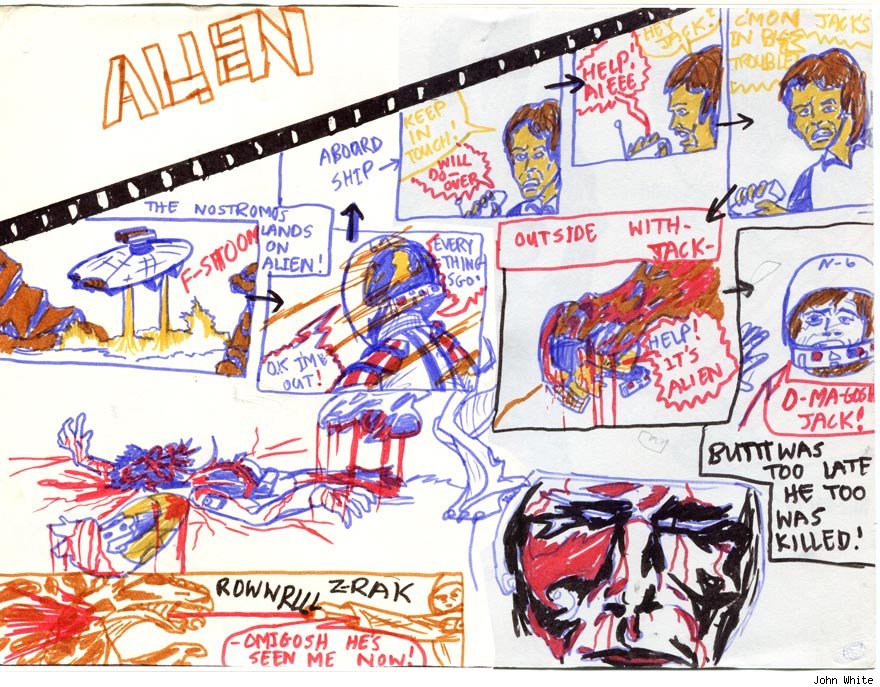 ALIEN
THE NOSTROMOS
LANDS
ON
ALIEN!
F-SHOOM
OK IM
OUT!
EVERY
THING
SGO!
ABOARD
SHIP
KEEP
IN
TOUCH!
WILL
DO-
OVER
HELP!
AIEEE
HEY
JACK!
C'MON JACKS
IN BIG
TROUBLE!
OUTSIDE WITH-
JACK-
HELP!
IT'S
ALIEN
N-6
O-MA-GOSH
JACK!
BUT IT WAS
TOO LATE
HE TOO
WAS
KILLED!
ROWNRLLL Z-RAK
-OMIGOSH HE'S
SEEN ME NOW!
John White